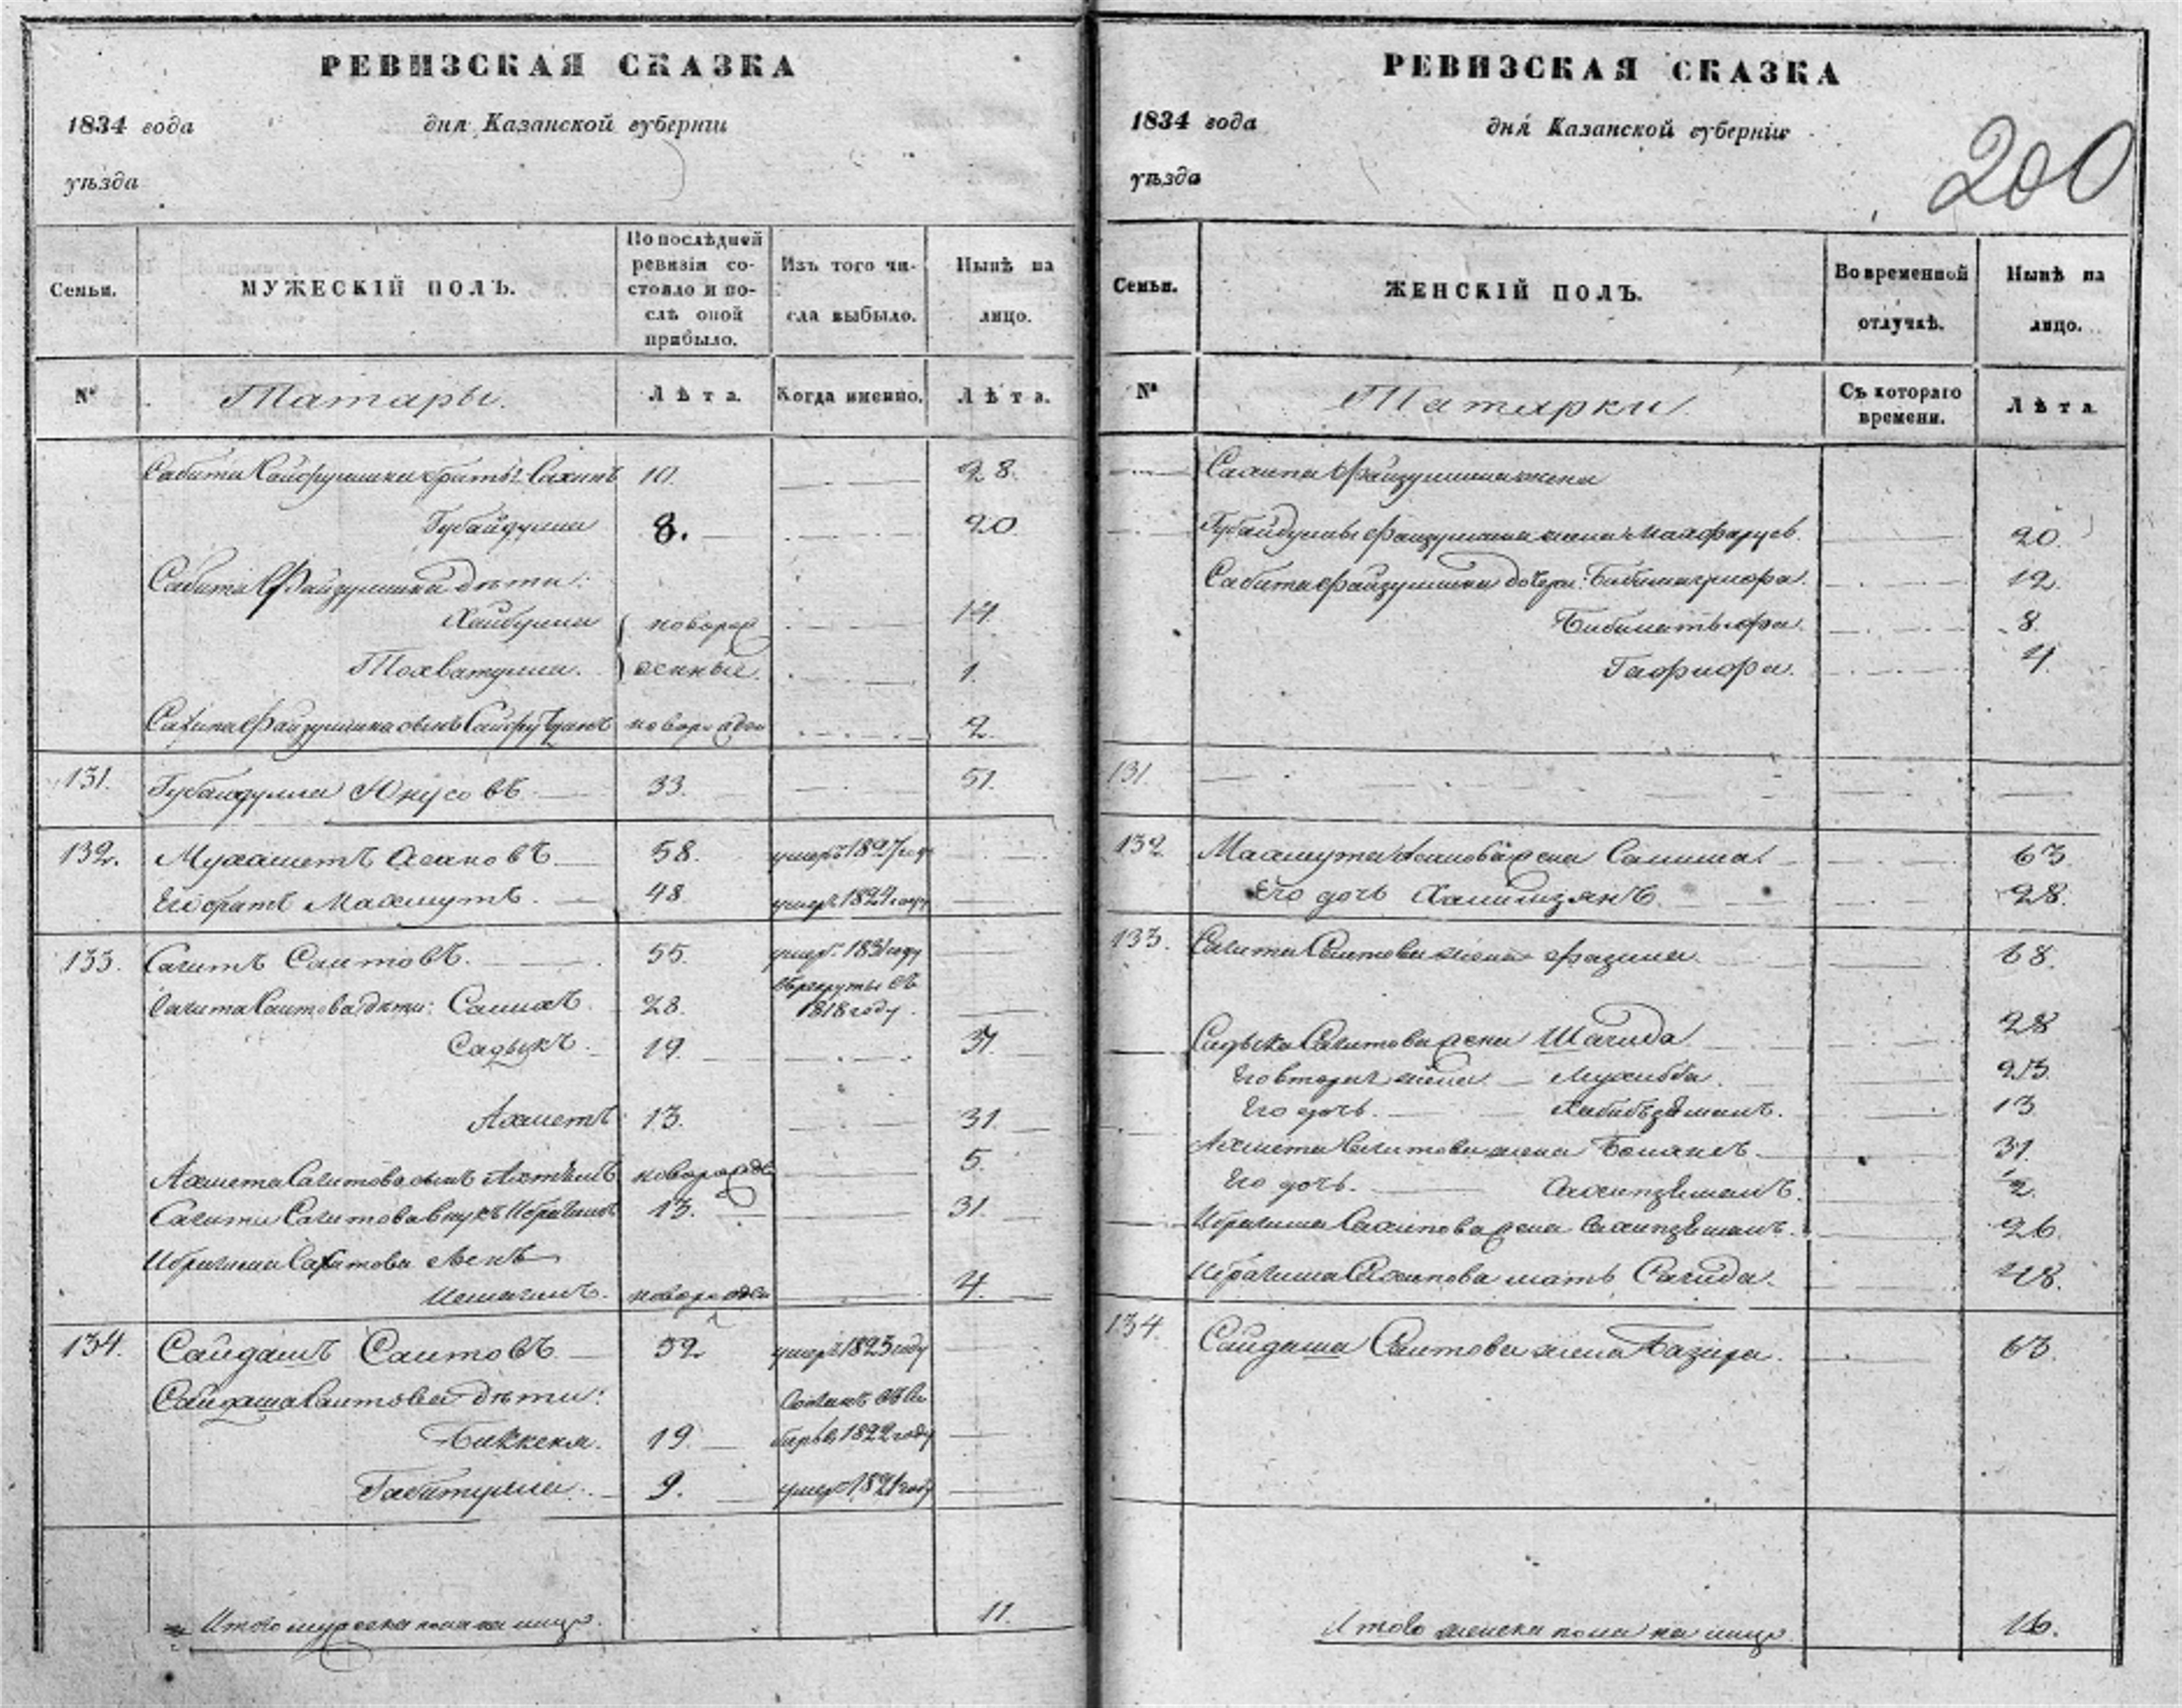 РЕВИЗСКАЯ СКАЗКА
1834 года дня Казанской губерніи
уѣзда
Семьи.
МУЖЕСКІЙ ПОЛЪ.
По послѣдней ревизіи со-
стояло и по-
слѣ оной
прибыло.
Изъ того чи-
сла выбыло.
Нынѣ на
лицо.
№
Татары.
Лѣта.
Когда именно.
Лѣта.
Сабита Файзуллина братья: Сахипъ 10. 28.
Губайдулла 8. 20
Сабита Файзуллина дѣти:
Хайбулла новорож 14
Тохватулла. денные. 1.
Сахипа Файзуллина сынъ новорожден 2.
131. Губайдулла Юнусовъ 33. 51.
132. Мухаметъ Асановъ 58. умеръ 1827 году
Его братъ Махмутъ. 48 умеръ 1824 году
133. Сагитъ Саитовъ. 55. умер. 1831 году
Сагита Саитова дѣти: Салихъ 28. въ рекруты въ
1818 году.
Садыкъ. 19. 37.
Ахметъ 13. 31.
Ахмета Сагитова сынъ новорожде 5.
Сагита Сагитова внукъ Ибрагимъ 13. 31.
Ибрагима сынъ
Исмагилъ. новорожден 4.
134. Сайдашъ Саитовъ 52 умеръ 1823 году
Сайдаша Саитова дѣти: Сосланъ въ Си
Биккеня. 19. бирь въ 1822 году
Габитулла. 9. умеръ 1821 году
Итого мужеска пола на лицо. 11.
РЕВИЗСКАЯ СКАЗКА
1834 года дня Казанской губерніи
уѣзда
200
Семьи.
ЖЕНСКІЙ ПОЛЪ.
Во временной
отлучкѣ.
Нынѣ на
лицо.
№
Татарки.
Съ котораго
времени.
Лѣта
Сахипа Файзуллина жена
Губайдуллы Файзуллина жена 20.
Сабита Файзуллина дочери: 12.
8.
4.
131
132 Махмута Асанова жена Салима. 63.
Его дочь 28.
133. Сагита Саитова жена Фазила 68.
Садыка Сагитова жена Шагида 28
Его вторая жена Мухибба. 23.
Его дочь. Хабибъземалъ. 13
Ахмета Сагитова жена 31.
Его дочь. Сахипземалъ. 1/2.
Ибрагима жена Сахипземалъ. 26.
Ибрагима мать Сагида. 48.
134. Сайдаша Саитова жена Базира. 63.
Итого женска пола на лицо 16.